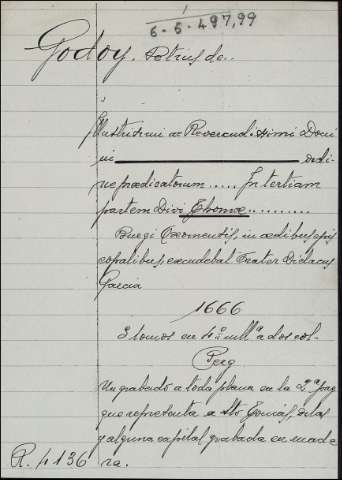 6-5-497,99
Godoy. Petrus de..
Illustrissimi ac Reverend.issimi Domi
ni ordi
ne prædicatorum ..... In tertiam
partem Divi Thomæ ..........
Burgi Oxomensis, in ædibus epis
copalibus, excudebal Frater Didacus
Garcia
1666
3 tomos en 4º mllª a dos col-
Perg
Un grabado a toda plana en la 2ª pag
que representa a Sto Tomás, orlas
y alguna capital grabada en made
ra.
R. 4136